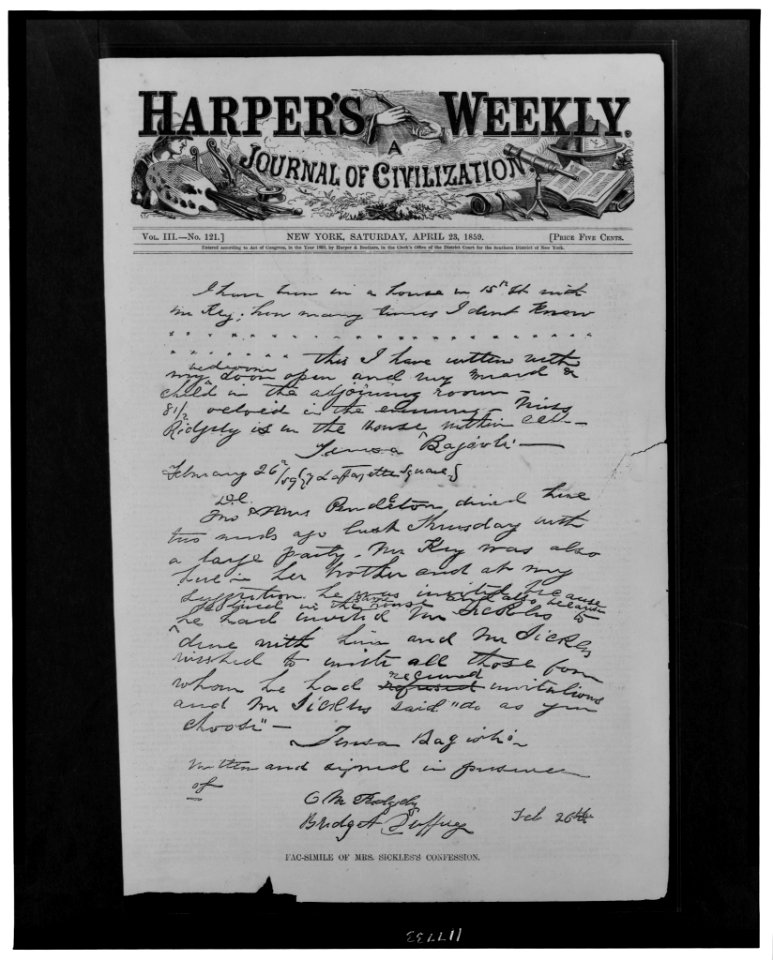 HARPER'S WEEKLY.
A
JOURNAL OF CIVILIZATION
VOL. III.—NO. 121.] NEW YORK, SATURDAY, APRIL 23, 1859. [PRICE FIVE CENTS.
Entered according to Act of Congress, in the Year 1859, by Harper & Brothers, in the Clerk's Office of the District Court for the Southern District of New York.
I have been in a house in 15th St with
Mr Key; how many times I dont know
this I have written with
bedroom
my door open and my maid &
child in the adjoining room —
8 1/2 oclock in the evening — Miss
Ridgely is in the house within call —
Teresa Bagioli —
February 26th /59 Lafayette Square
D.C.
Mrs Pendleton, dined here
two weeks ago last Thursday with
a large party. Mr Key was also
here her brother and at my
suggestion he was invited because
he lived in the same house and also because
he had invited Mr Sickles to
dine with him and Mr Sickles
wished to invite all those from
received
whom he had refused invitations
and Mr Sickles said "do as you
choose" —
Teresa Bagioli
Written and signed in presence
of
O M Ridgely
Bridget Duffy Feb 26th
FAC-SIMILE OF MRS. SICKLES'S CONFESSION.
117733